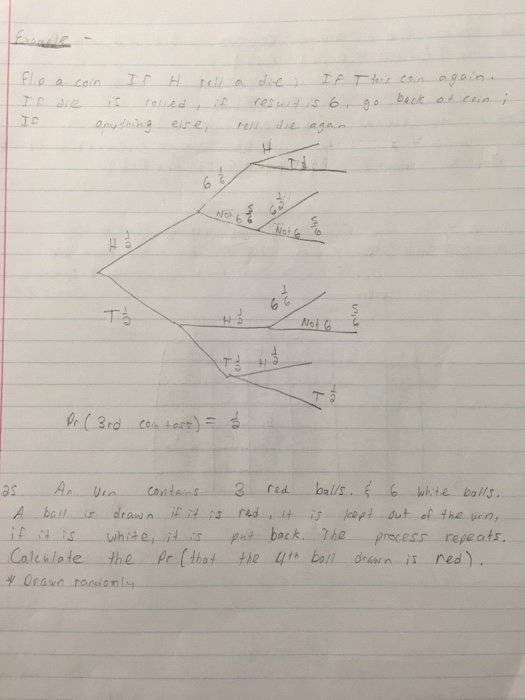 Example -
Flip a coin If H roll a die, If T toss coin again.
If die is rolled, if result is 6, go back at coin;
If anything else, roll die again
H
T 1/2
6 1/6
Not 6 5/6
6 1/6
Not 6 5/6
H 1/2
T 1/2
H 1/2
6 1/6
Not 6
5/6
T 1/2
H 1/2
T 1/2
Pr( 3rd coin toss) = 1/2
25 An Urn contains 3 red balls. & 6 white balls.
A ball is drawn if it is red, it is kept out of the urn,
if it is white, it is put back. The process repeats.
Calculate the Pr (that the 4th ball drawn is red).
* Drawn randomly